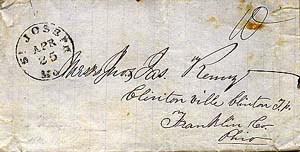 10
ST JOSEPH
APR
25
Mo.
Jas. Kenny
Clintonville Clinton Tp.
Franklin Co.
Ohio